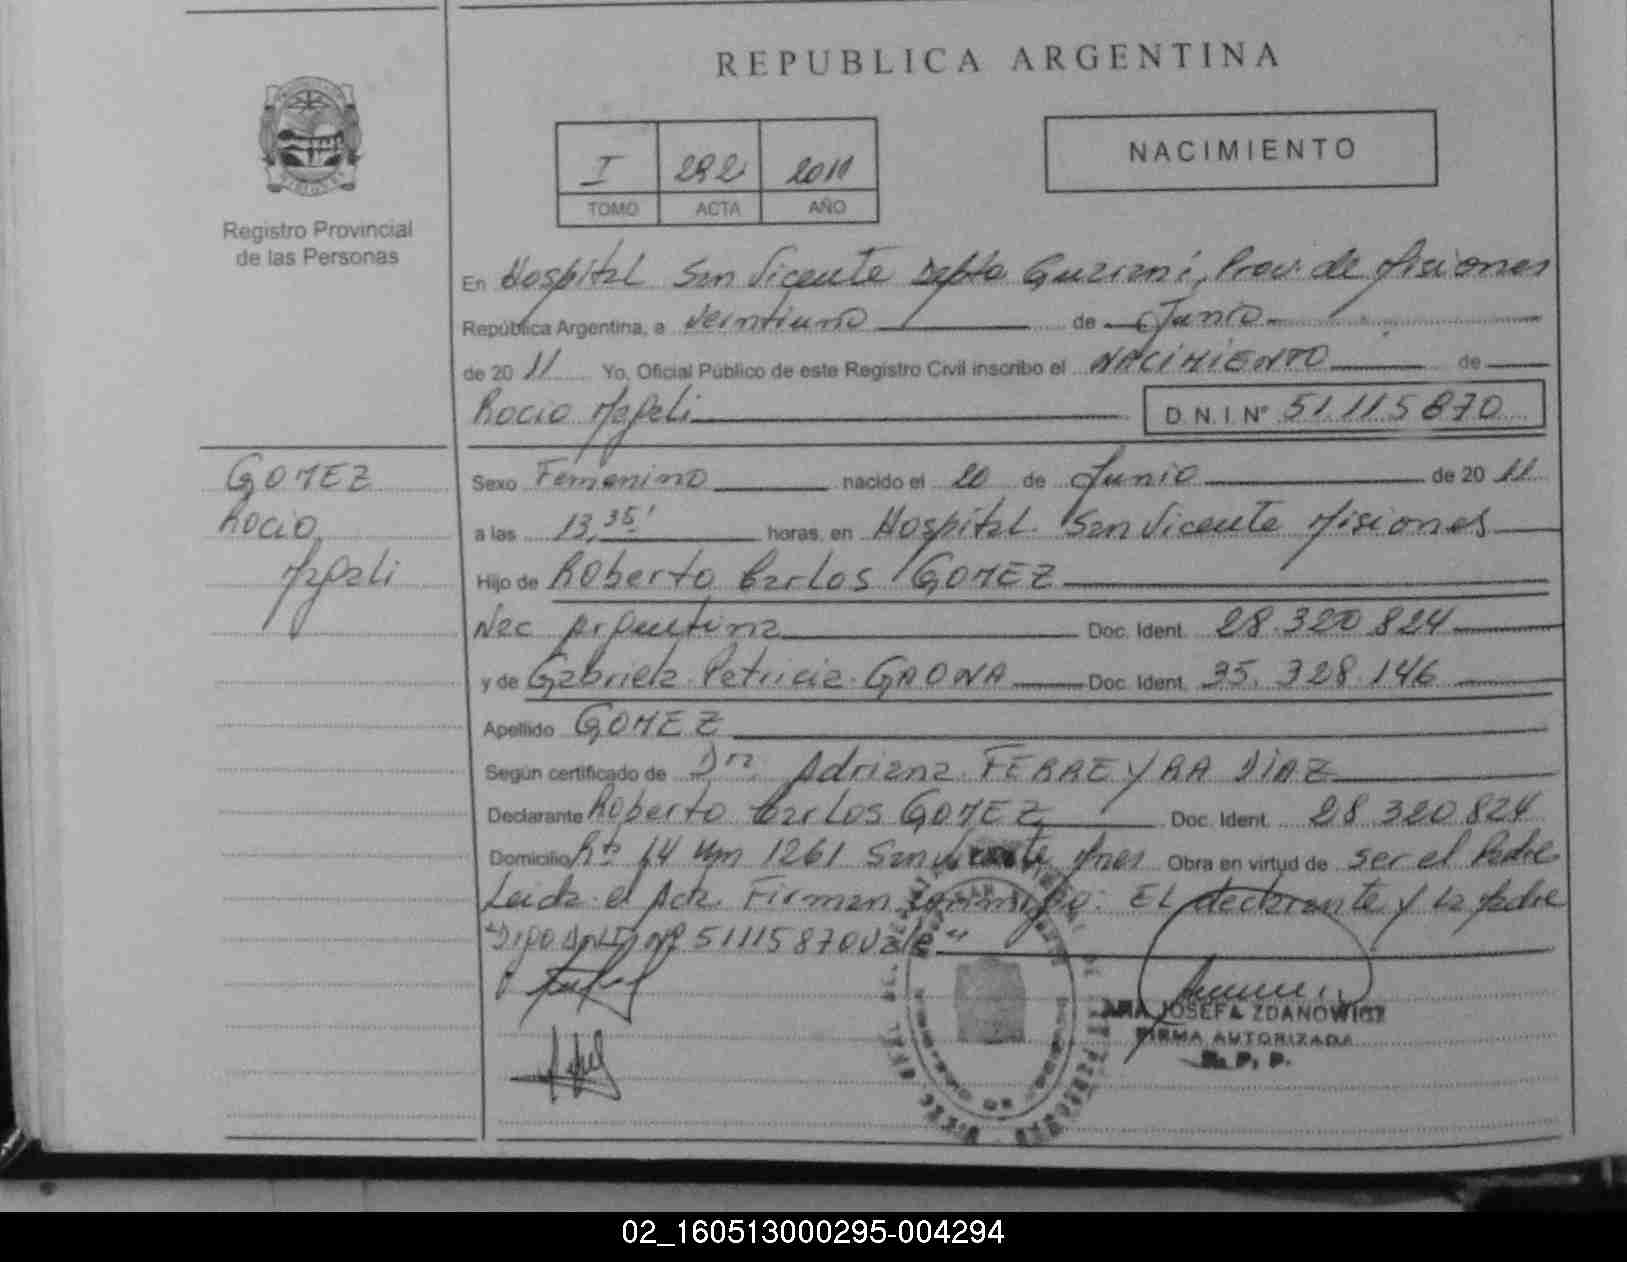 REPUBLICA ARGENTINA
Registro Provincial
de las Personas
I 292 2011
TOMO ACTA AÑO
NACIMIENTO
En Hospital San Vicente Depto Guarani, Prov. de Misiones
República Argentina, a Veintiuno de Junio
de 20 11 Yo, Oficial Público de este Registro Civil inscribo el NACIMIENTO de
Rocio Magali D.N.I. Nº 51.115 870
GOMEZ
Rocio
Magali
Sexo Femenino nacido el 20 de Junio de 20 11
a las 13,35' horas, en Hospital San Vicente Misiones
Hijo de Roberto Carlos GOMEZ
Nac Argentina Doc. Ident. 28.320 824
y de Gabriela Patricia GAONA Doc. Ident. 35.328.146
Apellido GOMEZ
Según certificado de Dra Adriana FERREYRA DIAZ
Declarante Roberto Carlos GOMEZ Doc. Ident. 28 320 824
Domicilio Rta 14 Km 1261 San Vicente Mnes Obra en virtud de ser el Padre
Leida el Acta. Firman conmigo: EL declarante y la Madre
51115870 Vale"
JOSEFA ZDANOWICZ
FIRMA AUTORIZADA
R. P. P.
02_160513000295-004294